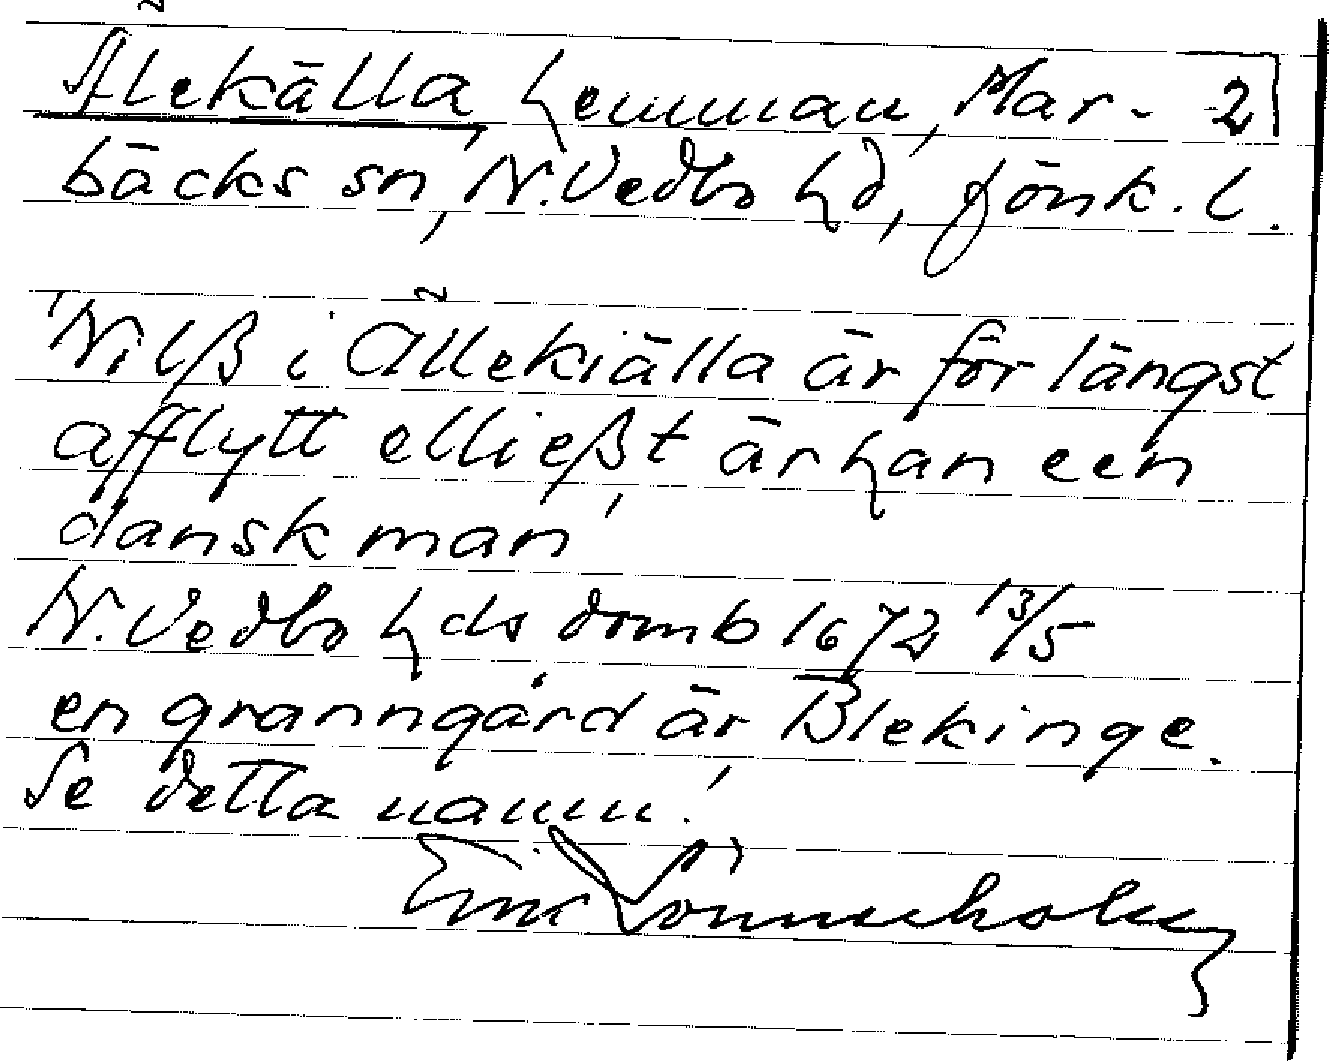 Alekälla hemman, Mar- 2
bäcks sn, N. Vedbo hd, Jönk. l.
'Nilß i Allekiälla är för längst
afflytt elließt är han een
dansk man'
N. Vedbo hds domb 1672 13/5
en granngård är Blekinge.
Se detta namn!
Erik Lönnerholm